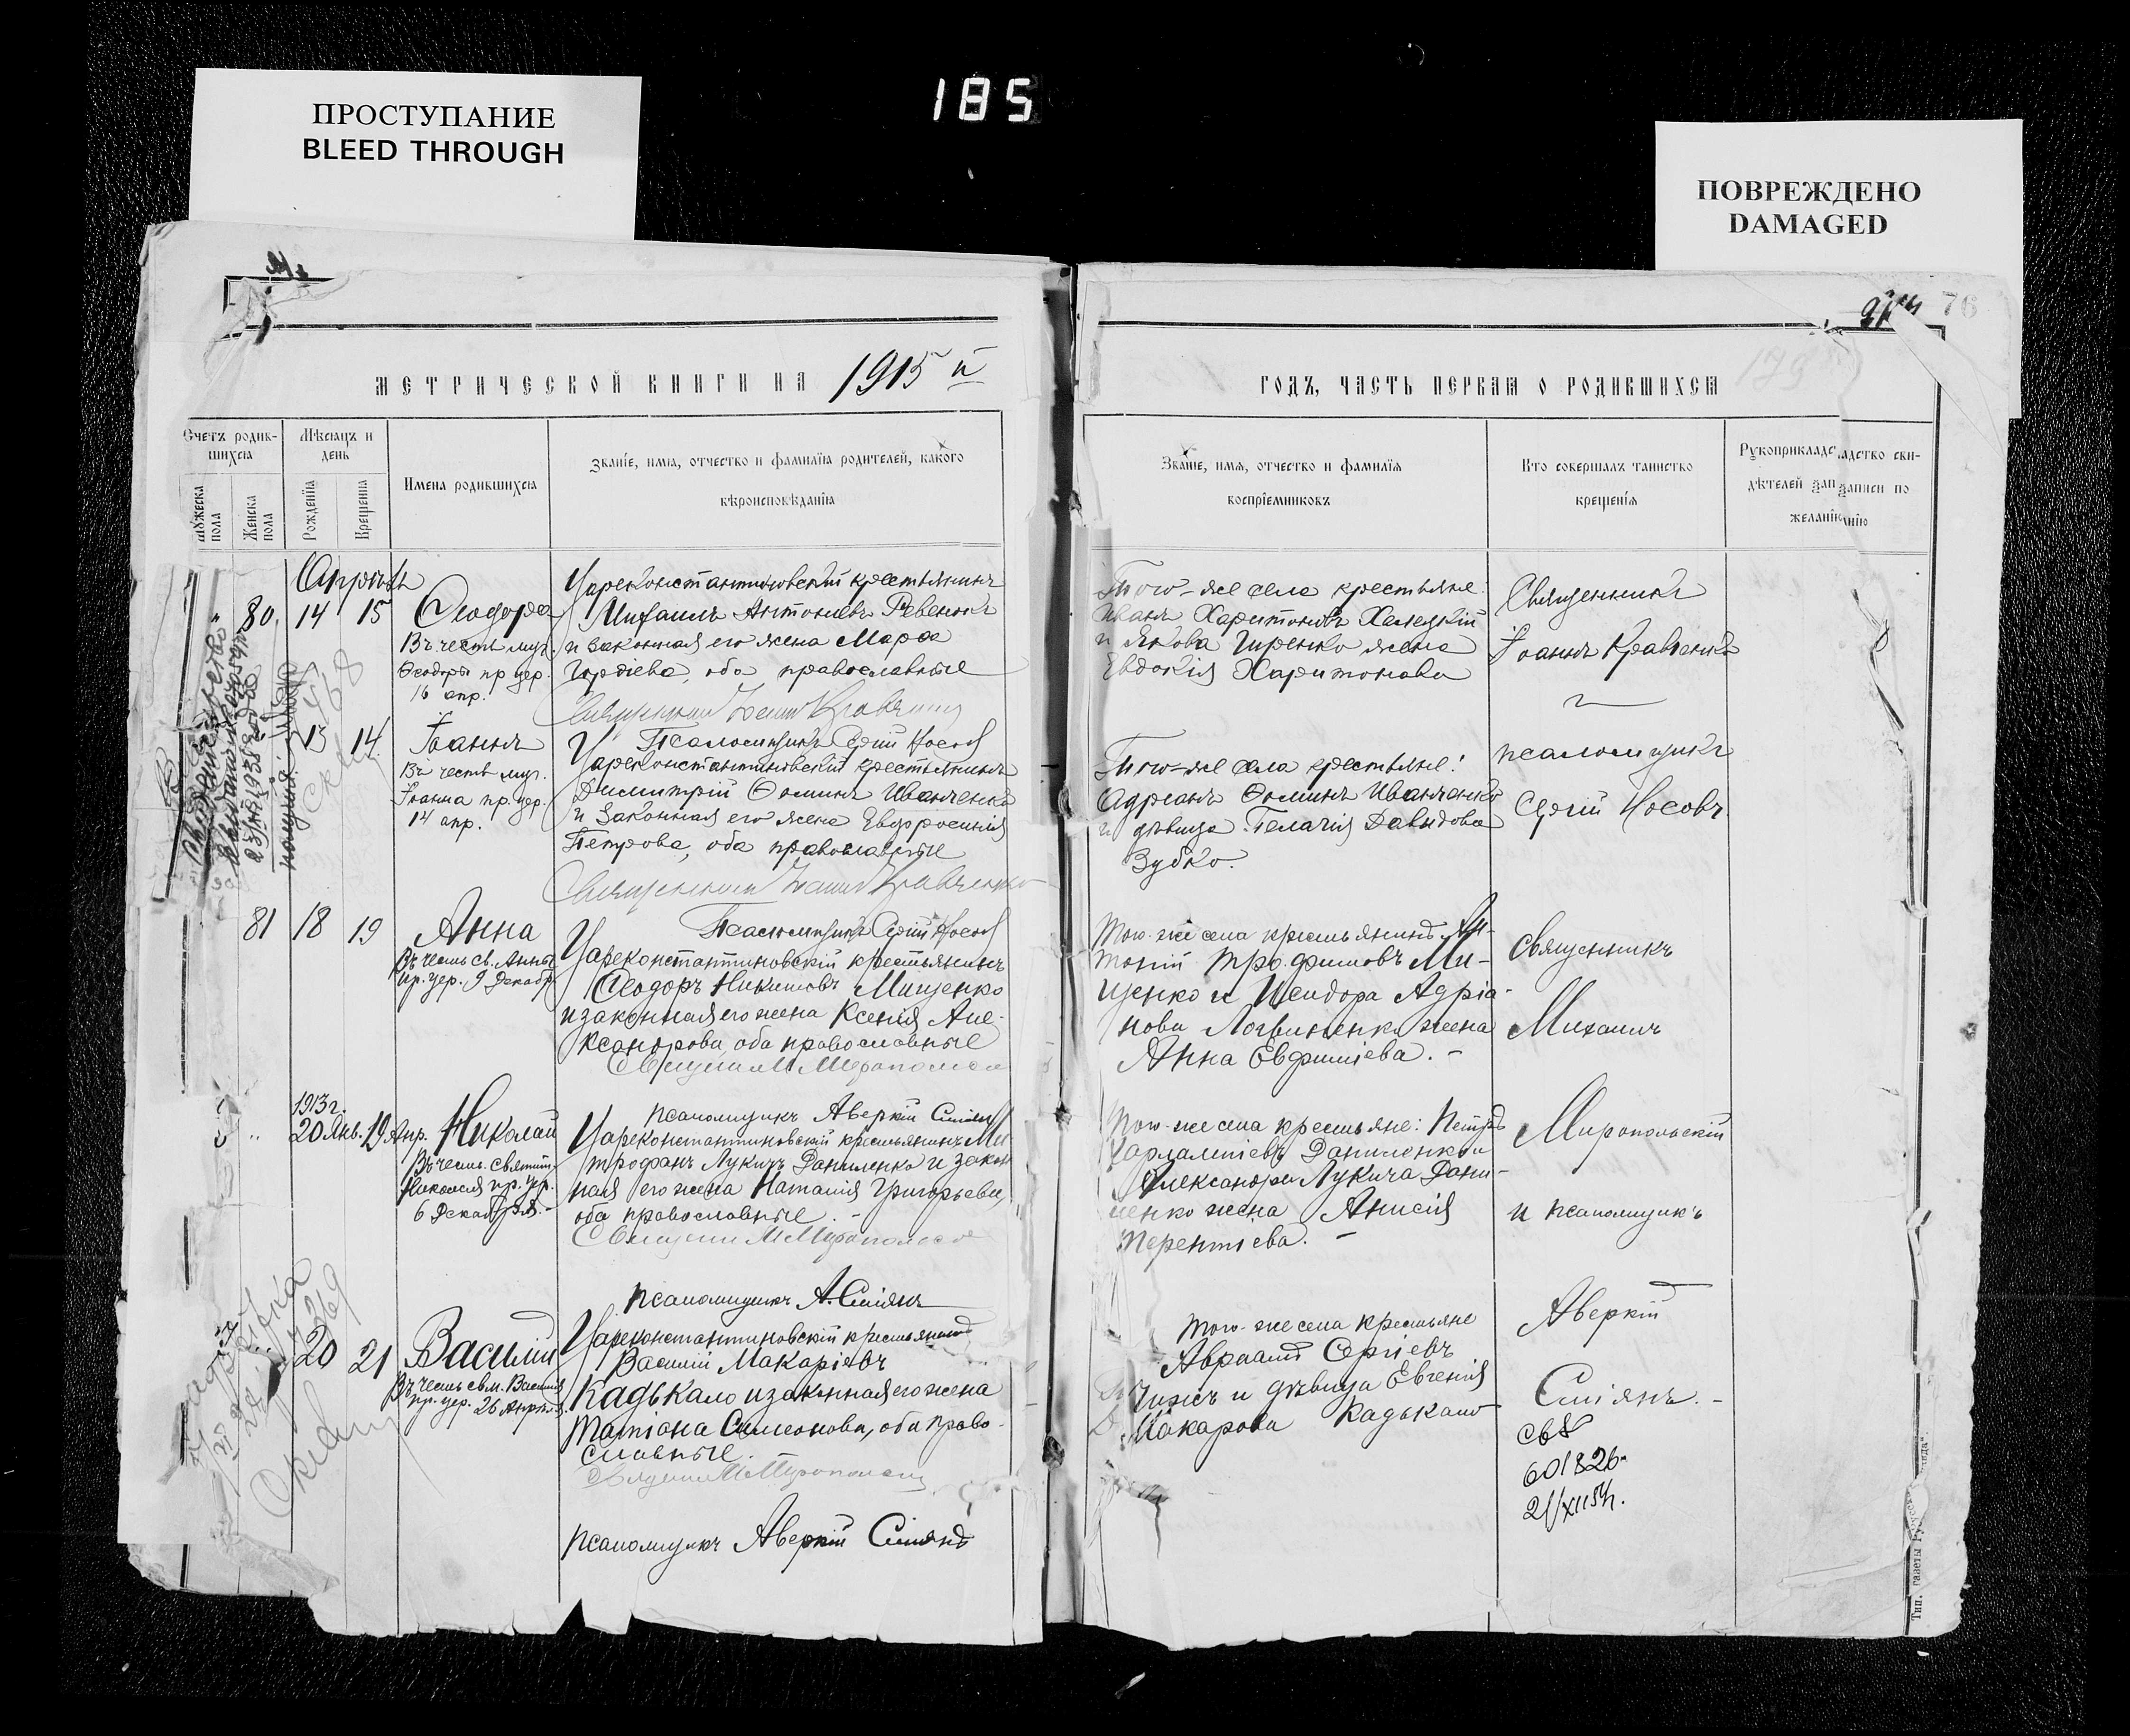 185
ПРОСТУПАНИЕ
BLEED THROUGH
ПОВРЕЖДЕНО
DAMAGED
76
МЕТРИЧЕСКОЙ КНИГИ НА 1915 й
Счетъ родив-
шихся
Мѣсяцъ и
день
Имена родившихся
Званіе, имя, отчество и фамилія родителей, какого
вѣроисповѣданія
Мужеска
пола
Женска
пола
Рожденія
Крещенія
Апрѣль
80 14 15 Ѳеодора
Въ честь муч.
Ѳеодоры пр. цер.
16 апр.
Цареконстантиновскій крестьянинъ
Михаилъ Антоніевъ Ревенко
и законная его жена Марѳа
Гордіева, оба православные
Священникъ Іоаннъ Кравченко
Псаломщикъ Сергій Носовъ
13 14 Іоаннъ
Въ честь муч.
Іоанна пр. цер.
14 апр.
Цареконстантиновскій крестьянинъ
Димитрій Ѳоминъ Иванченко
и законная его жена Евфросинія
Петрова, оба православные
Священникъ Іоаннъ Кравченко
Псаломщикъ Сергій Носовъ
81 18 19 Анна
Въ честь св. Анны
пр. цер. 9 Декабр.
Цареконстантиновскій крестьянинъ
Ѳеодоръ Никитовъ Мищенко
и законная его жена Ксенія Але-
ксандрова, оба православные
псаломщикъ Аверкій Сміянъ
1913 г.
20 Янв. 19 Апр. Николай
Въ честь святит.
Николая пр. цер.
6 Декабря.
Цареконстантиновскій крестьянинъ Ми-
трофанъ Лукичъ Даниленко и закон
ная его жена Наталія Григорьева,
оба православные.
псаломщикъ А. Сміянъ
20 21 Василій
Въ честь свм. Василія
пр. цер. 26 Апрѣля.
Цареконстантиновскій крестьянинъ
Василій Макаріевъ
Кадькало и законная его жена
Татіана Симеонова, оба право-
славные.
псаломщикъ Аверкій Сміянъ
ГОДЪ, ЧАСТЬ ПЕРВАЯ О РОДИВШИХСЯ
Званіе, имя, отчество и фамилія
воспріемниковъ
Кто совершалъ таинство
крещенія
Рукоприкладство сви-
дѣтелей записи по
желанію
Того-же села крестьяне:
Иванъ Харитоновъ Халецкій
и Якова Гиренко жена
Евдокія Харитонова
Священникъ
Іоаннъ Кравченко
Того-же села крестьяне:
Адріанъ Ѳоминъ Иванченко
и дѣвица Пелагія Давидова
Зубко.
псаломщикъ
Сергій Носовъ
Того-же села крестьянинъ Ан-
тоній Трофимовъ Ми-
щенко и Исидора Адріа-
нова Логвиненка жена
Анна Евфиміева.
священникъ
Михаилъ
Того-же села крестьяне: Петръ
Харлампіевъ Даниленко и
Александра Лукича Дани-
ленко жена Анисія
Терентіева.
Миропольскій
и псаломщикъ
Того-же села крестьяне
Авраамъ Сергіевъ
Чижъ и дѣвица Евгенія
Макарова Кадькало
Аверкій
Сміянъ.